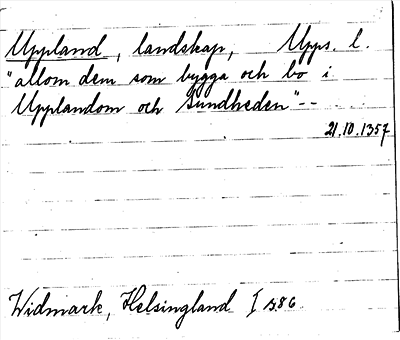 Uppland, landskap, Upps. l.
"allom dem som bygga och bo i
Upplandom och Sundheden" --
21.10.1357
Widmark, Helsingland I s. 86.